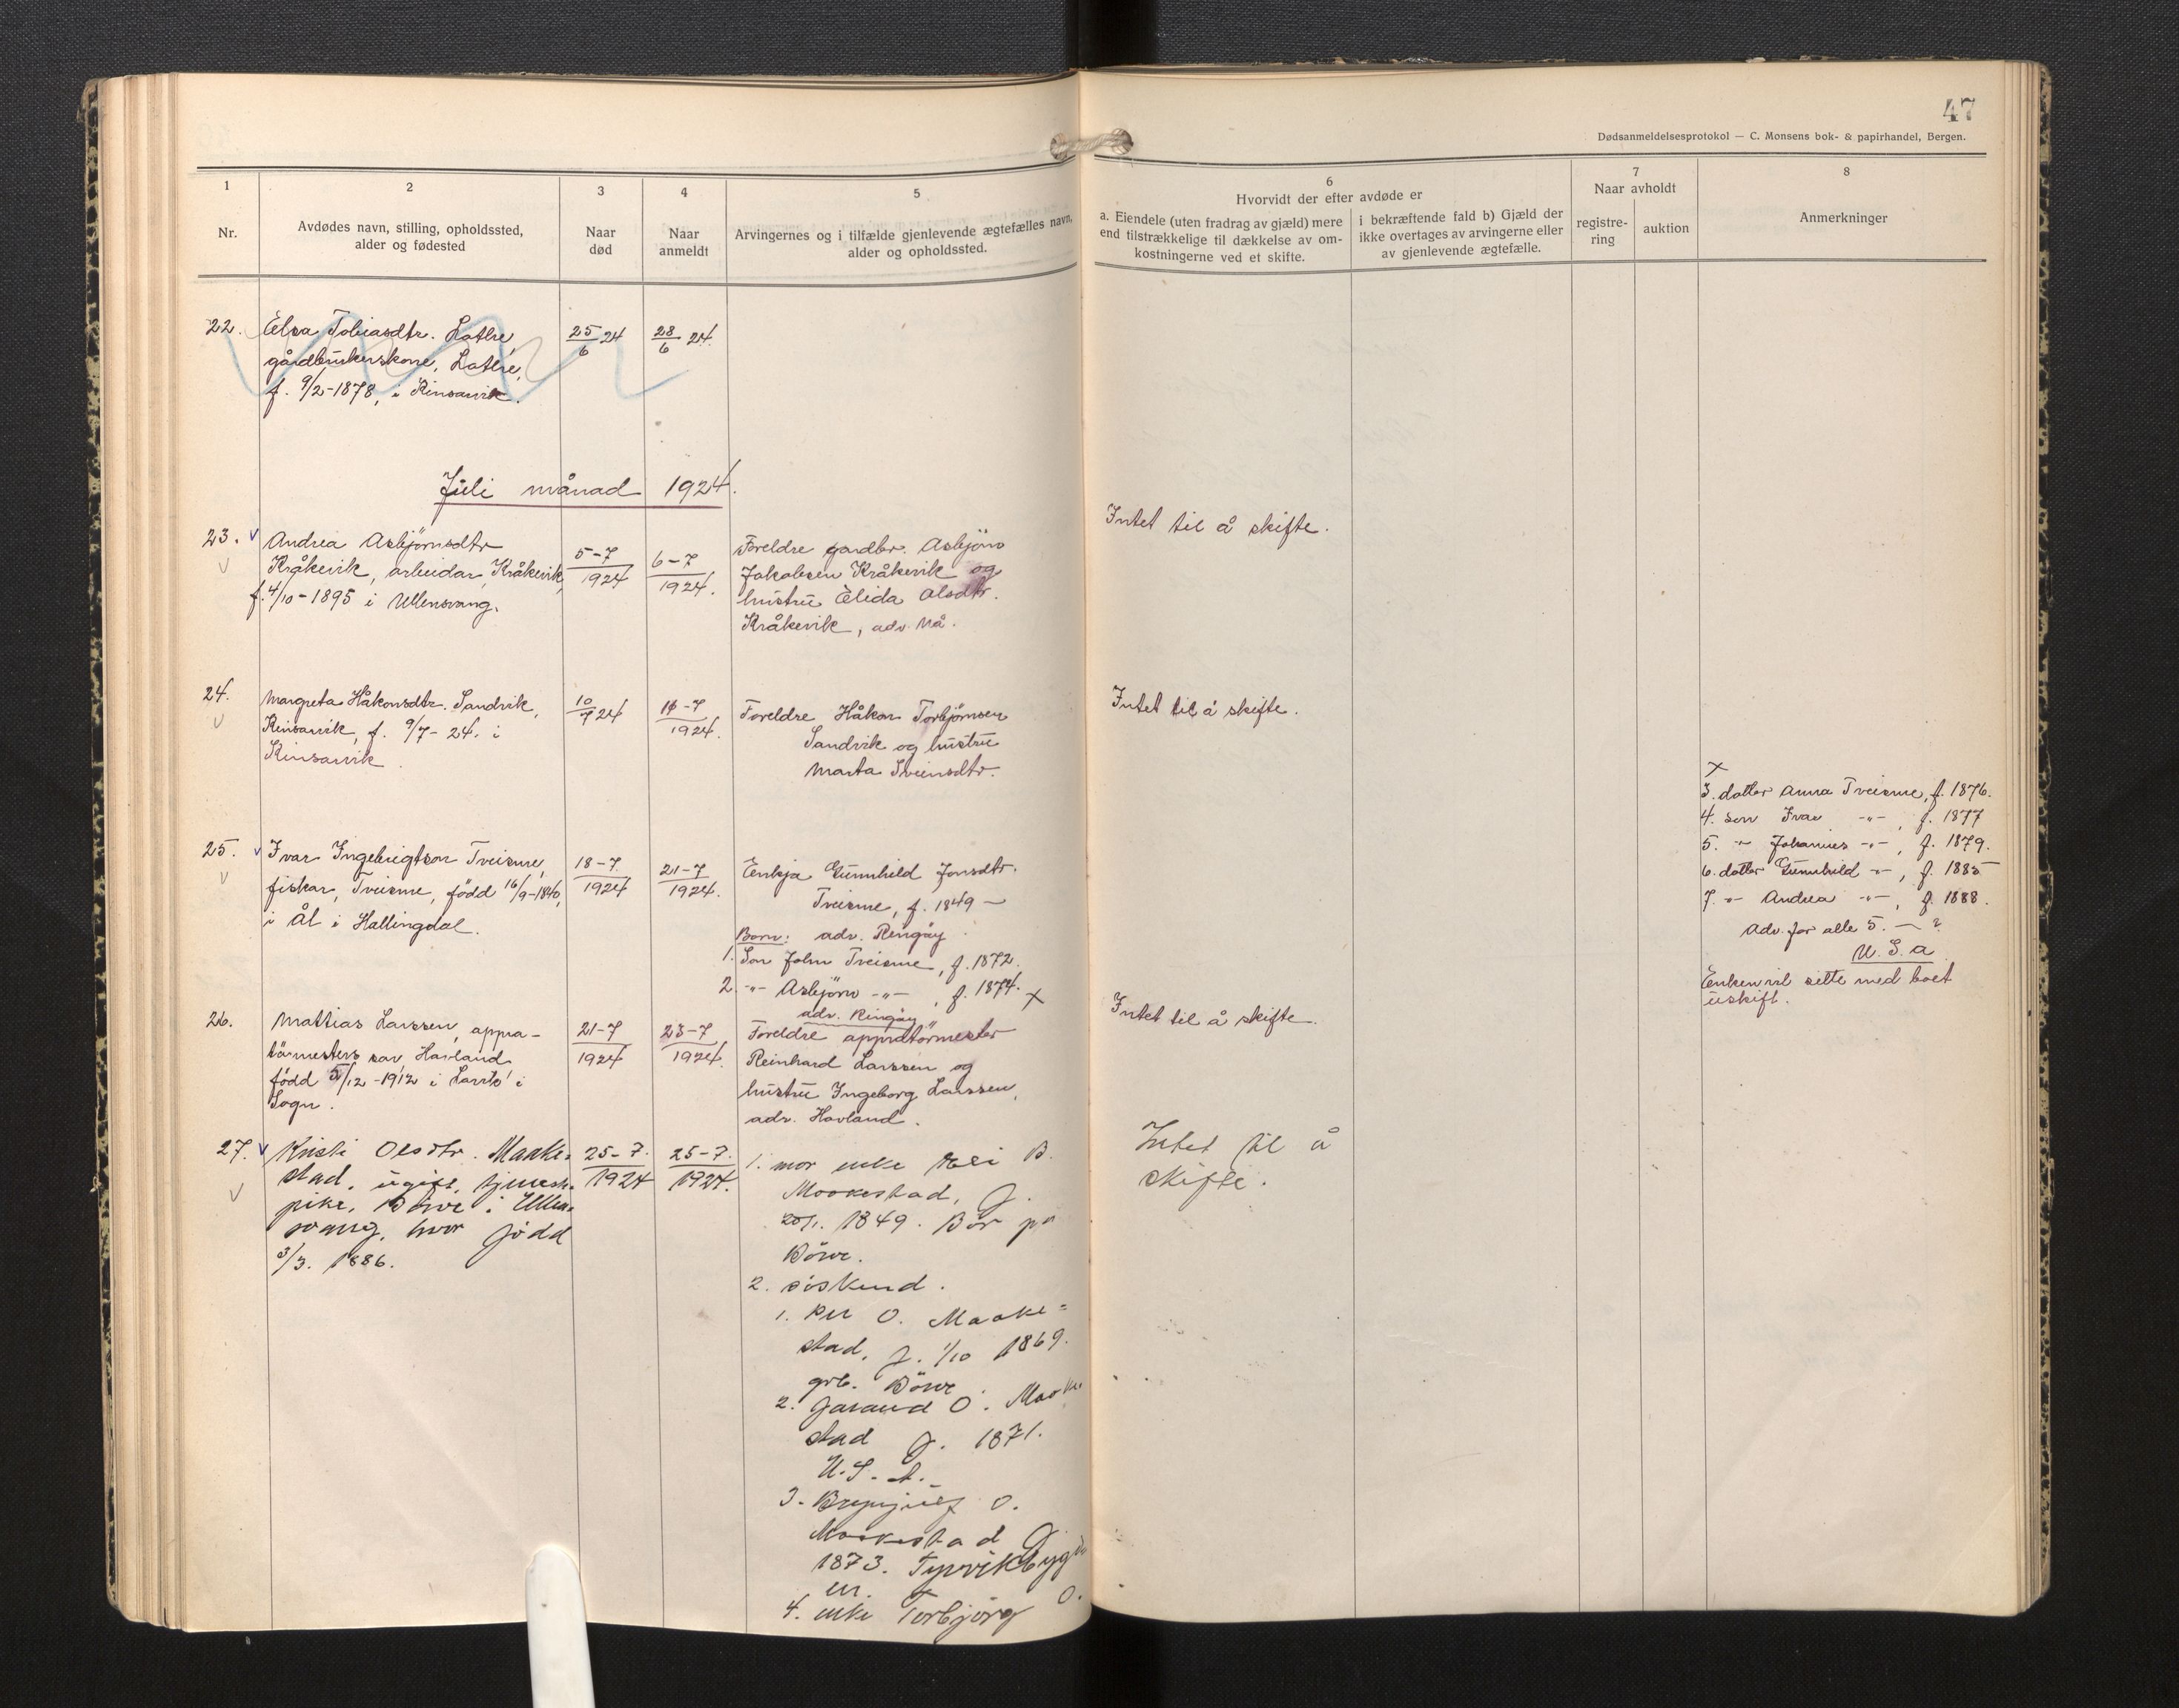 47
Dødsanmeldelsesprotokol — C. Monsens bok- & papirhandel, Bergen.
1
Nr.
2
Avdødes navn, stilling, opholdssted,
alder og fødested
3
Naar
død
4
Naar
anmeldt
5
Arvingernes og i tilfælde gjenlevende ægtefælles navn,
alder og opholdssted.
6
Hvorvidt der efter avdøde er
a. Eiendele (uten fradrag av gjæld) mere
end tilstrækkelige til dækkelse av om-
kostningerne ved et skifte.
i bekræftende fald b) Gjæld der
ikke overtages av arvingerne eller
av gjenlevende ægtefælle.
7
Naar avholdt
registre-
ring
auktion
8
Anmerkninger
22.
Elsa Tobiasdtr. Lothe,
gårdbrukerskone, Lothe,
f. 9/2-1878, i Kinsarvik.
25/6 24
28/6 24.
Juli månad 1924.
23.
Andrea Asbjörnsdtr
Kråkevik, arbeidar, Kråkevik,
f. 4/10-1895 i Ullensvang.
5-7
1924
6-7
1924.
Foreldre gardbr. Asbjörn
Jakobsen Kråkevik og
hustru Elida Olsdtr.
Kråkevik, adr. Nå.
Intet til å skifte.
24.
Margreta Håkonsdtr. Sandvik,
Kinsarvik, f. 9/7-24. i
Kinsarvik.
10/7 24
11-7
1924.
Foreldre Håkon Torbjörnsen
Sandvik og hustru
Marta Sveinsdtr.
Intet til å skifte.
25.
Ivar Ingebrigtson Tveisme,
fiskar, Tveisme, född 16/9-1840,
i Ål i Hallingdal.
18-7
1924
21-7
1924.
Enkja Gunnhild Jonsdtr.
Tveisme, f. 1849 —
Born: adr. Ringöy.
1. Son John Tveisme, f. 1872.
2. -"- Asbjörn -"-, f. 1874. x
adr. Ringöy
x
3. dotter Anna Tveisme, f. 1876.
4. son Ivar -"-, f. 1877
5. -"- Johannes -"-, f. 1879.
6. dotter Gunnhild -"-, f. 1885
7. -"- Andrea -"-, f. 1888.
Adr. for alle 5. — ?
U. S. a
Enken vil sitte med boet
uskift.
26.
Mattias Larssen, appra-
törmesters son Hovland
född 5/12-1912 i i
Sogn.
21-7
1924
23-7
1924.
Foreldre appratörmester
Reinhard Larssen og
hustru Ingeborg Larssen,
adr. Hovland.
Intet til å skifte.
27.
Kristi Olsdtr. Maake-
stad, ugift, tjeneste-
pike, Börve i Ullens-
vang, hvor född
3/3. 1886.
25-7.
1924
25-7.
1924.
1. mor enke Eli B.
Maakestad, f.
1849. Bor pa
Börve.
2. söskend.
1. Per O. Maake-
stad, f. 1/10 1869.
grb. Börve.
2. O. Maake
stad f. 1871.
U. S. A.
3. Brynjulf O.
Maakestad f.
1873.
4. enke Torbjörg O.
Intet til å
skifte.